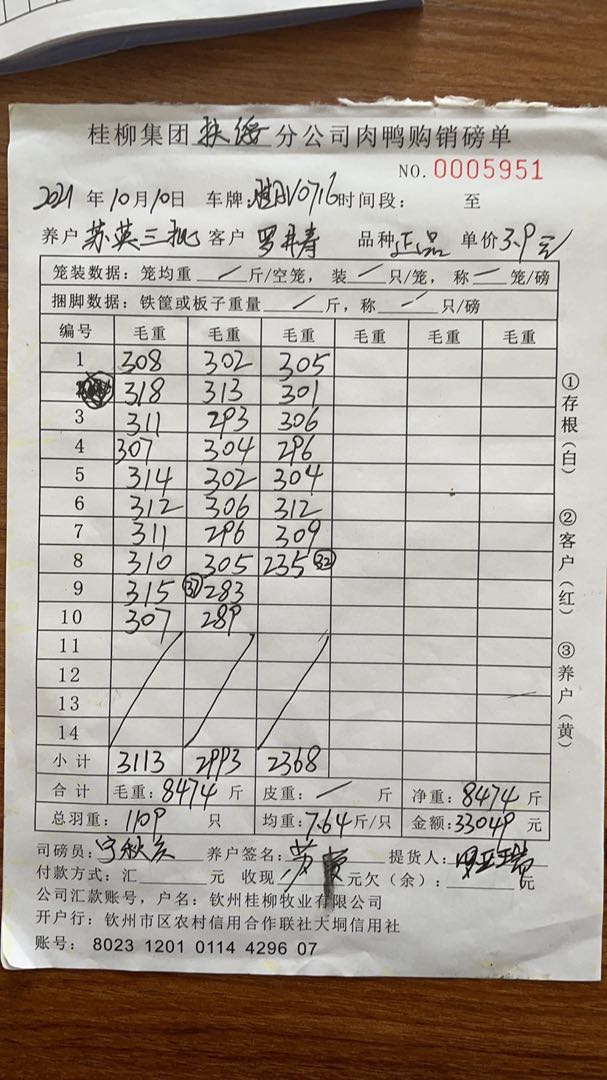 桂柳集团扶绥分公司肉鸭购销磅单
NO.0005951
2021年10月10日 车牌: V0716 时间段: 至
养户 苏英三批 客户 罗 寿 品种 正品 单价 3.9元
笼装数据: 笼均重 / 斤/空笼, 装 / 只/笼, 称 / 笼/磅
捆脚数据: 铁筐或板子重量 / 斤, 称 / 只/磅
编号 毛重 毛重 毛重 毛重 毛重 毛重
1 308 302 305
318 313 301
3 311 293 306
4 307 304 296
5 314 302 304
6 312 306 312
7 311 296 309
8 310 305 235 32
9 315 31 283
10 307 289
11
12
13
14
小计 3113 2993 2368
合计 毛重: 8474 斤 皮重: / 斤 净重: 8474 斤
总羽重: 1109 只 均重: 7.64 斤/只 金额: 33049 元
司磅员: 宁秋 养户签名: 苏 提货人: 罗
付款方式: 汇 元 收现 元欠(余): 元
公司汇款账号, 户名: 钦州桂柳牧业有限公司
开户行: 钦州市区农村信用合作联社大垌信用社
账号: 8023 1201 0114 4296 07
①存根(白)
②客户(红)
③养户(黄)